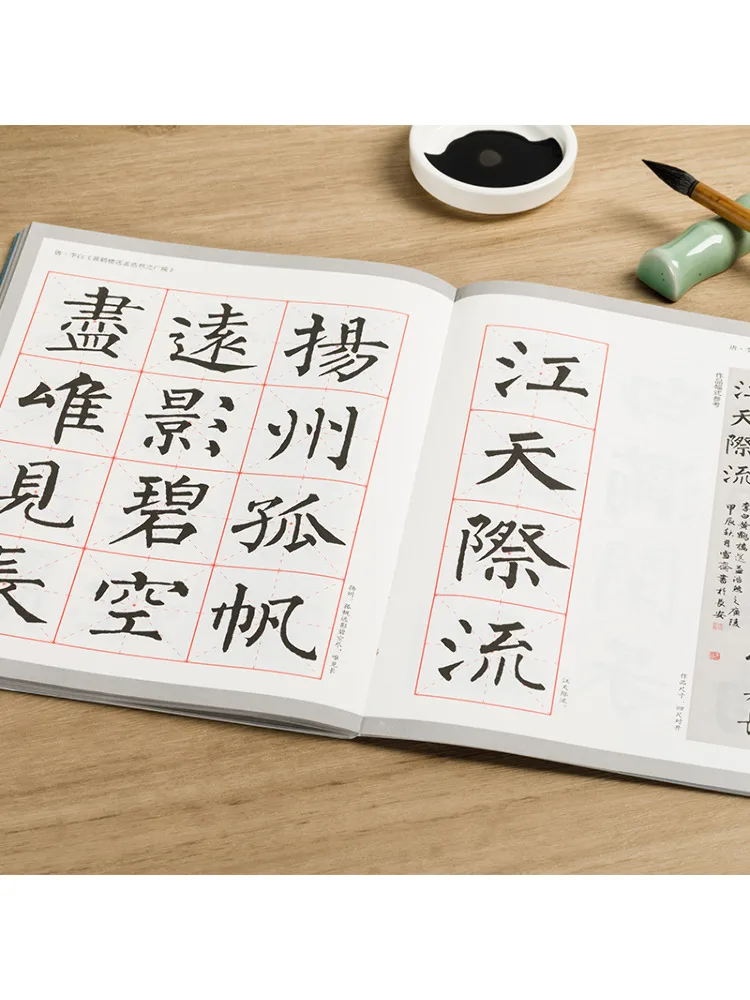 唐·李白《黄鹤楼送孟浩然之广陵》
揚州孤帆
遠影碧空
盡唯見長
扬州。孤帆远影碧空尽，唯见长
江天際流
江天际流。
唐·
作品幅式参考
江天際流
李白黄鶴樓送孟浩然之廣陵
甲辰秋月雪齋書於長安
作品尺寸：四尺对开